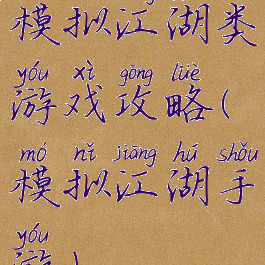 模拟江湖类
yóu xì gōng lüè
游戏攻略(
mó nǐ jiāng hú shǒu
模拟江湖手
yóu
游)